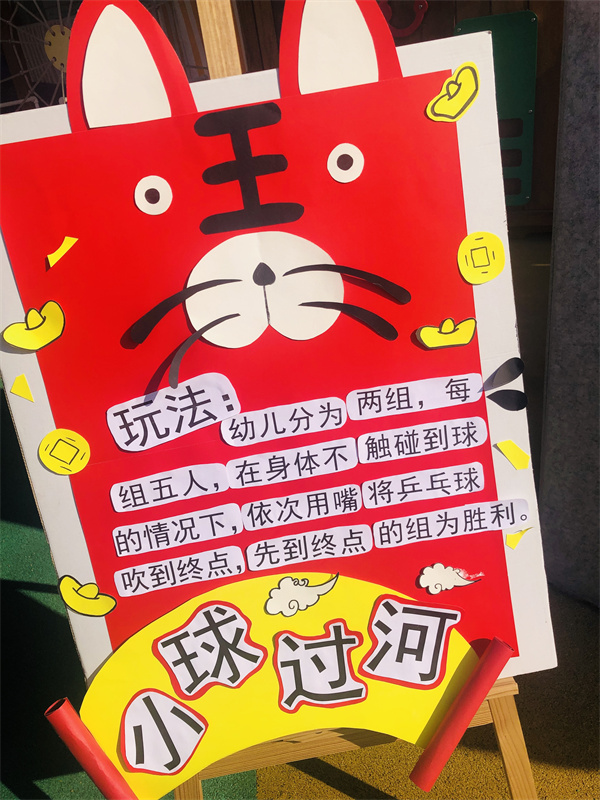 王
玩法：幼儿分为两组，每
组五人，在身体不触碰到球
的情况下，依次用嘴将乒乓球
吹到终点，先到终点的组为胜利。
小球过河